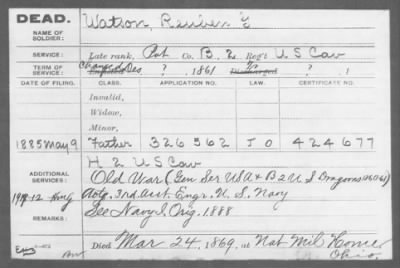 DEAD.
NAME OF SOLDIER: Watson, Reuben G
SERVICE: Late rank, Pvt Co. B, 2 Reg't U S Cav
TERM OF SERVICE: Enlisted Changed Des ? , 1861 Discharged ? , 1
DATE OF FILING. CLASS. APPLICATION NO. LAW. CERTIFICATE NO.
Invalid,
Widow,
Minor,
1885 May 9 Father 326562 J O 424677
H 2 U S Cav
ADDITIONAL SERVICES: Old War (Gen Ser USA & B 2 U S Dragoons
Actg. 3rd Asst. Engr. U. S. Navy
REMARKS: See Navy I. Orig. 1888
Died Mar 24, 1869, at Nat Mil Home
Ohio.